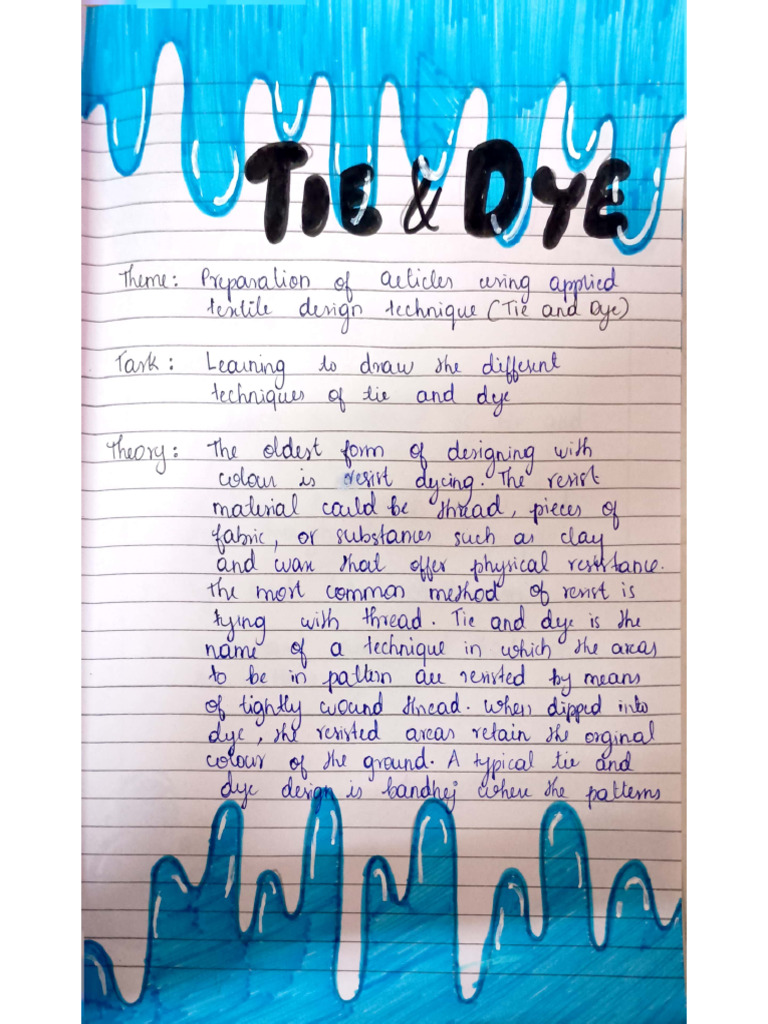 TIE & DYE
Theme: Preparation of articles using applied
textile design technique (Tie and Dye)
Task: Learning to draw the different
techniques of tie and dye
Theory: The oldest form of designing with
colour is resist dyeing. The resist
material could be thread, pieces of
fabric, or substances such as clay
and wax that offer physical resistance.
The most common method of resist is
tying with thread. Tie and dye is the
name of a technique in which the areas
to be in pattern are resisted by means
of tightly wound thread. When dipped into
dye, the resisted areas retain the orginal
colour of the ground. A typical tie and
dye design is bandhej where the patterns